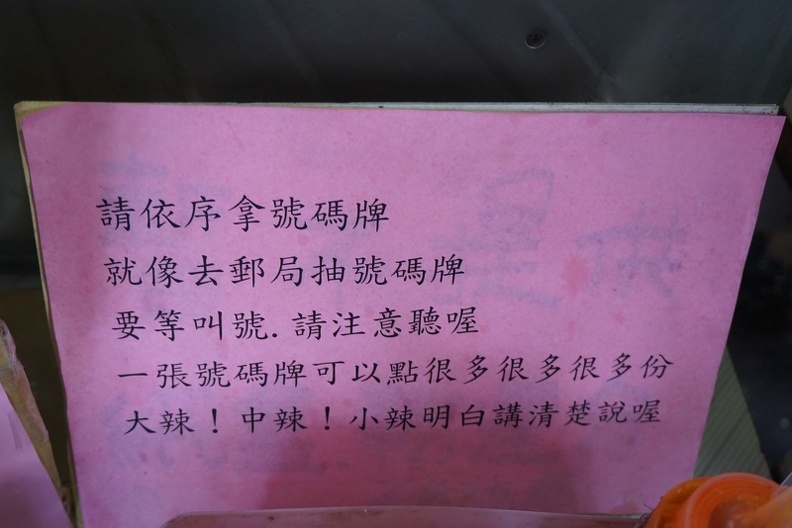 請依序拿號碼牌
就像去郵局抽號碼牌
要等叫號.請注意聽喔
一張號碼牌可以點很多很多很多份
大辣！中辣！小辣明白講清楚說喔